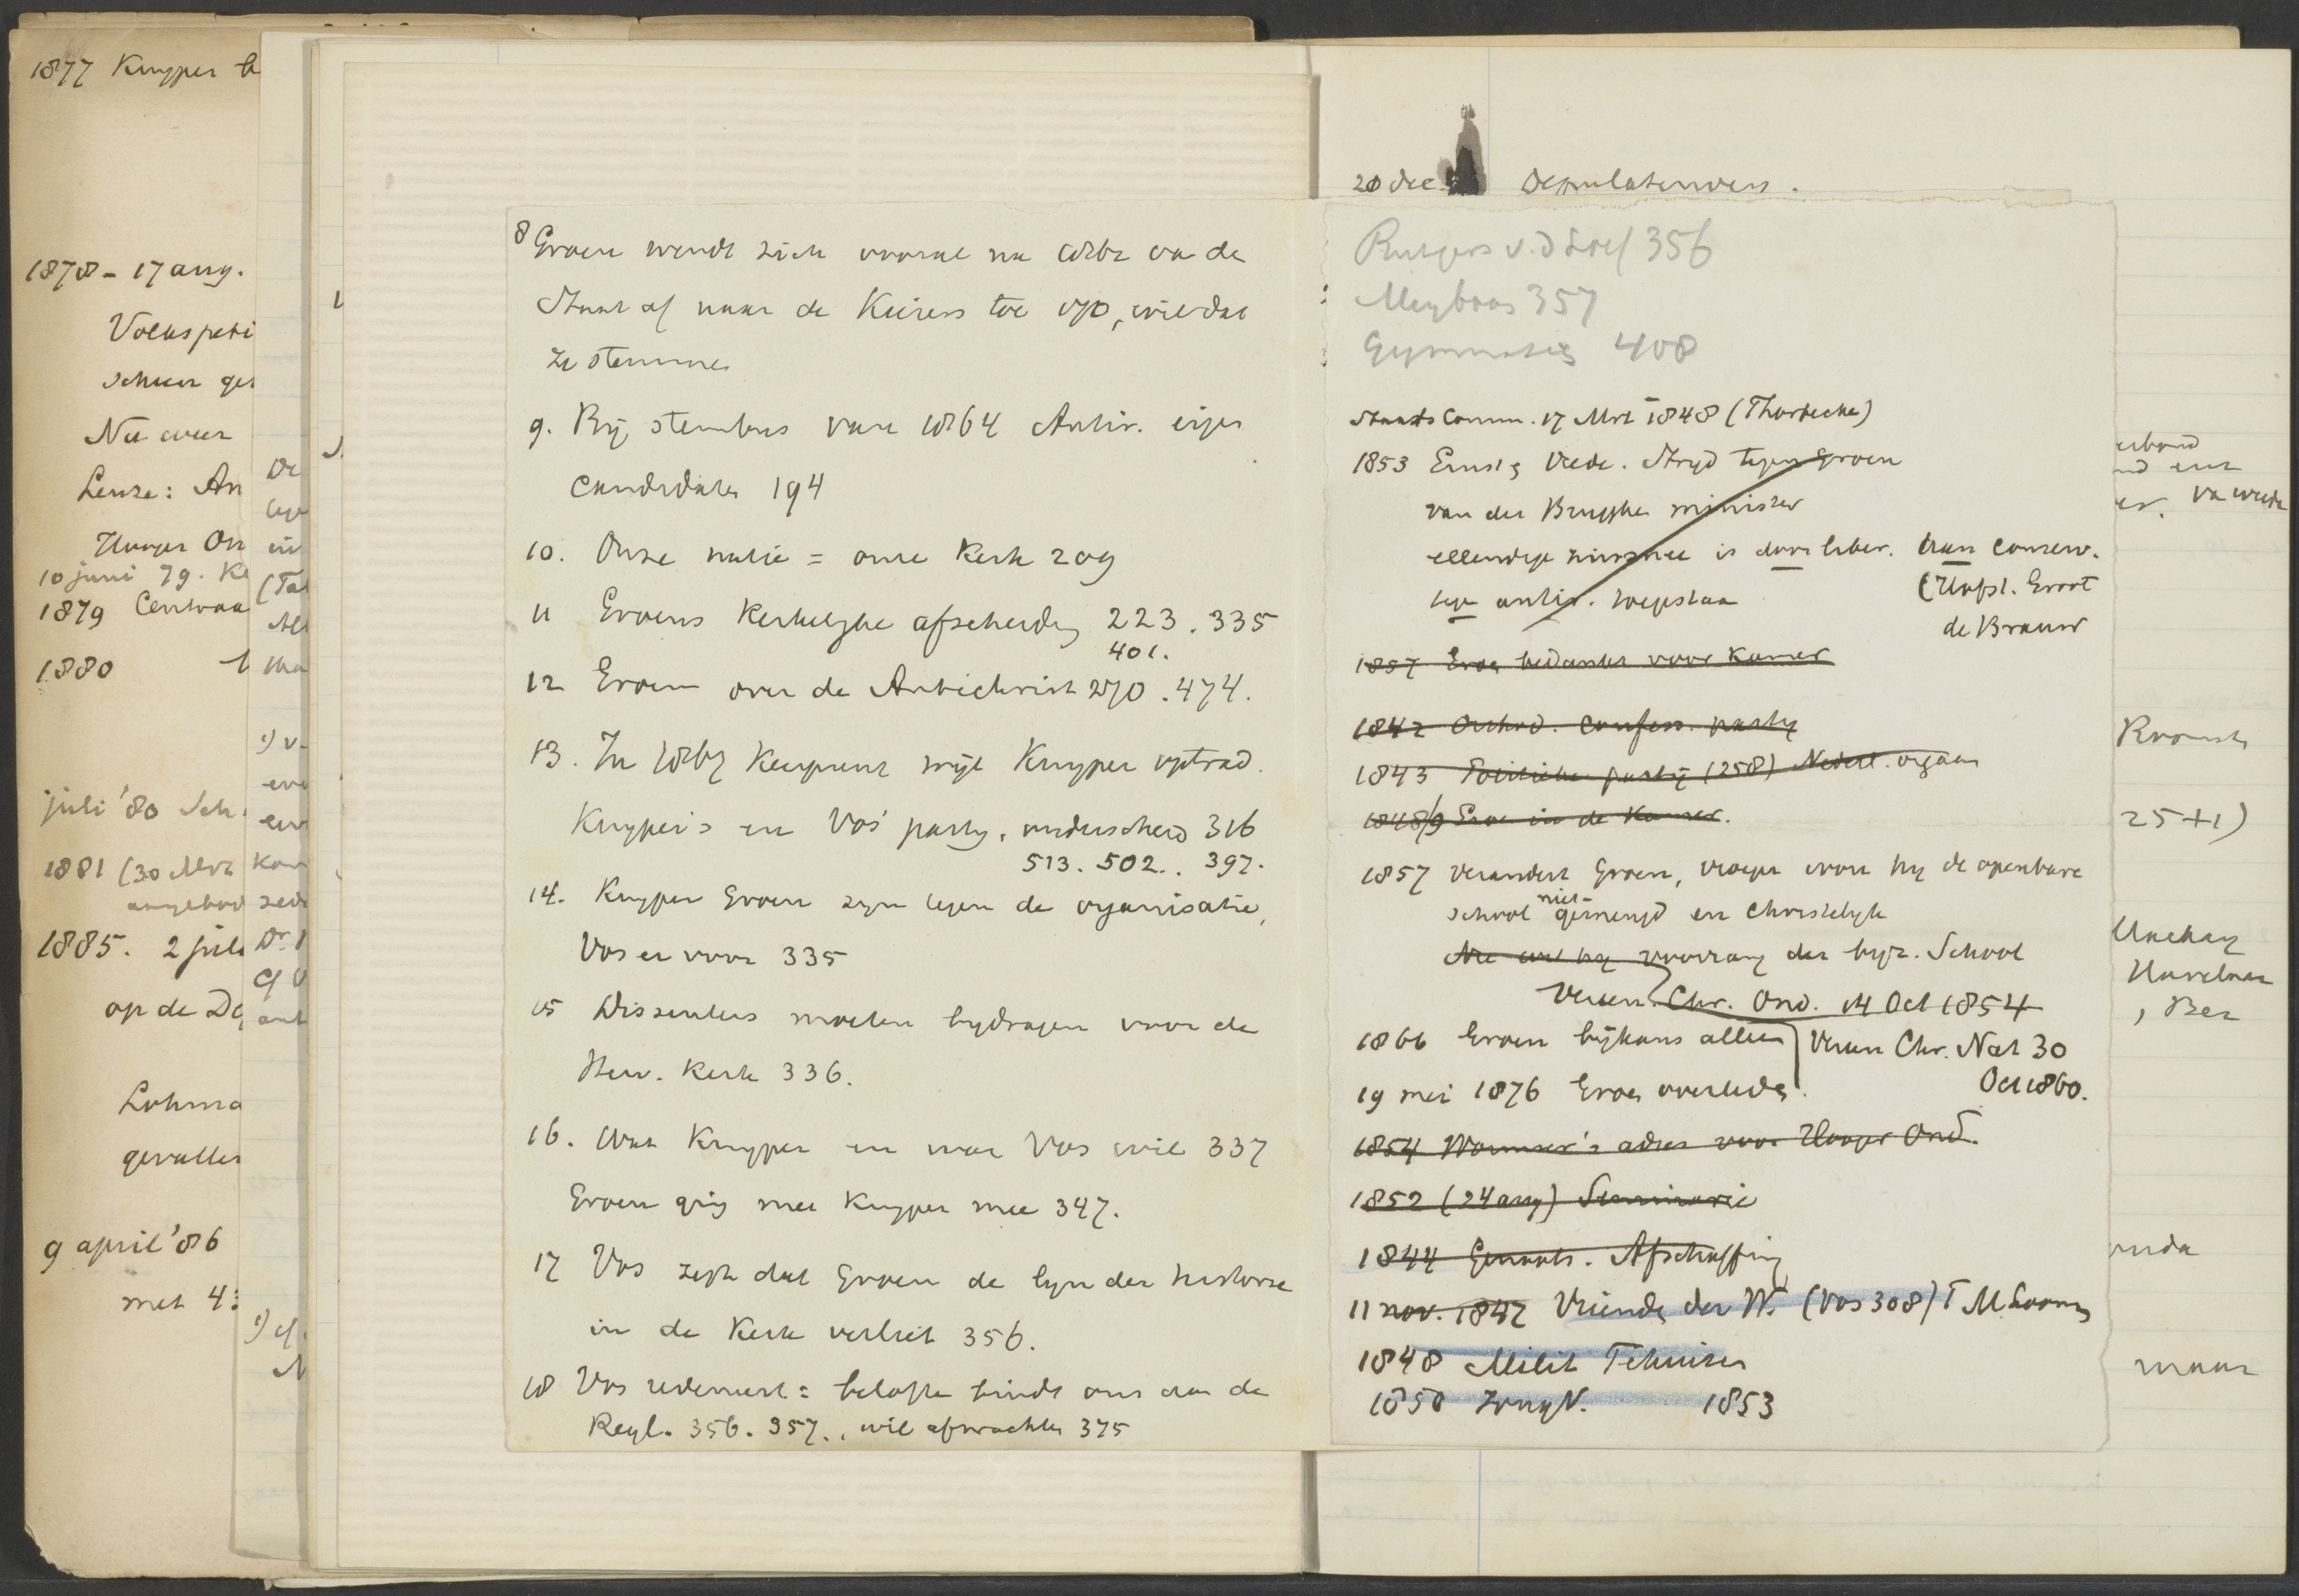 1877 Kuyper b
1878 - 17 aug.
Volkspeti
schoer ges
Nu weer
Leuze: An
Hooger On
10 juni 79. Ke
1879 Centraa
1880
juli '80 Sch
1881 (30 Mrt
aangebod
1885. 2 juli
op de De
Lohma
gevallen
9 april '86
met 43
De
in
(Tal
All
1) v.
Kon
Dr.
1) cf.
8 Groen wendt zich vooral na 1862 van de
Staat af naar de Kiezers toe 190, wie dat
ze stemmen
9. Bij stembus van 1864 Antir. eigen
candidaten 194
10. Onze natie = onze Kerk 209
11 Groens Kerkelijke afscheiding 223. 335
401.
12 Groen over de Antichrist 270. 474.
13. In 1867 Keerpunt wijl Kuyper optrad.
Kuyper's en Vos' party, onderscheid 316
513. 502.. 397.
14. Kuyper Groen zijn tegen de organisatie,
Vos er voor 335
15 Dissenters moeten bijdragen voor de
Herv. Kerk 336.
16. Wat Kuyper en wat Vos wil 337
Groen ging met Kuyper mee 347.
17 Vos zegt dat Groen de lijn der historie
in de Kerk verliet 356.
18 Vos redeneert: belofte bindt ons aan de
Regl. 356. 357., wil afwachten 375
20 dec. Deputatenvers.
Rutgers v.d Loeff 356
Meyboom 357
Gymnasia 408
Staats Comm. 17 Mrt 1848 (Thorbecke)
1853 Ernst & Vrede. Strijd tegen Groen
van der Brugghe minister
ellendige is door liber. aan conserv.
tege antir. (Hofst. Groot
de Brauw
1857 Groen bedankt voor Kamer
1842 Orthod. Confess. party
1843 Politieke partij (258) Nederl. orgaan
1848/9 Groen in de Kamer.
1857 verandert Groen, vroeger wou hij de openbare
school niet gemengd en Christelijk
Nu wil hij voorrang der bijz. School
Vereen. Chr. Ond. 14 Oct 1854
1866 Groen bijkans alleen Vereen Chr. Nat 30
Oct 1860.
19 mei 1876 Groen overleden.
1854 Wormser's adres voor Hooger Ond.
1852 (24 aug) Seminarie
1844 Genoots. Afschaffing
11 nov. 1842 Vrienden der W. (Vos 308)
1848 Milit Tehuizen
1850 1853
erband
25 + 1)
, Bez
maar